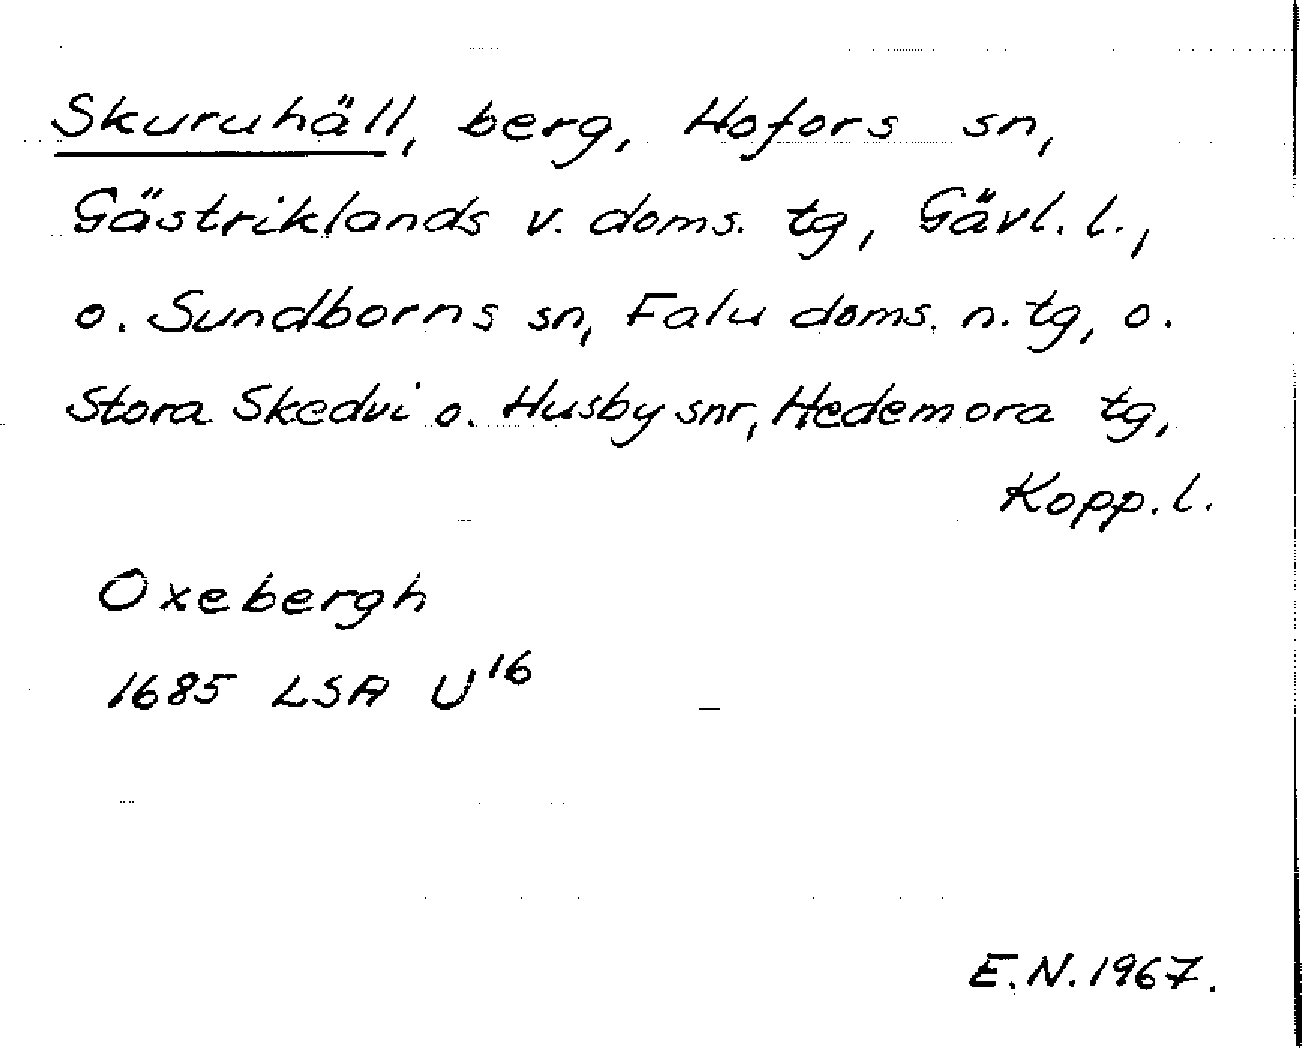 Skuruhäll, berg, Hofors sn,
Gästriklands v. doms. tg, Gävl. l.,
o. Sundborns sn, Falu doms. n. tg, o.
Stora Skedvi o. Husby snr, Hedemora tg,
Kopp. l.
Oxebergh
1685 LSA U¹⁶
E.N. 1967.